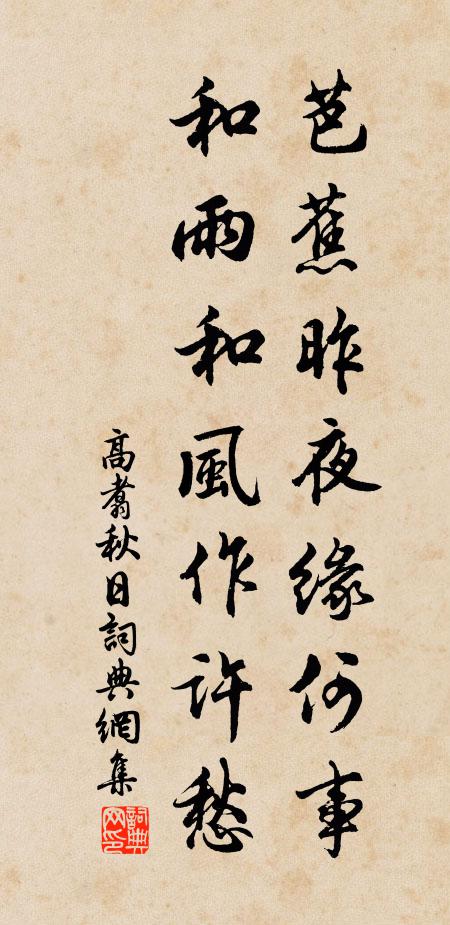 芭蕉昨夜緣何事
和雨和風作許愁
高翥秋日詞典網集
詞典網印